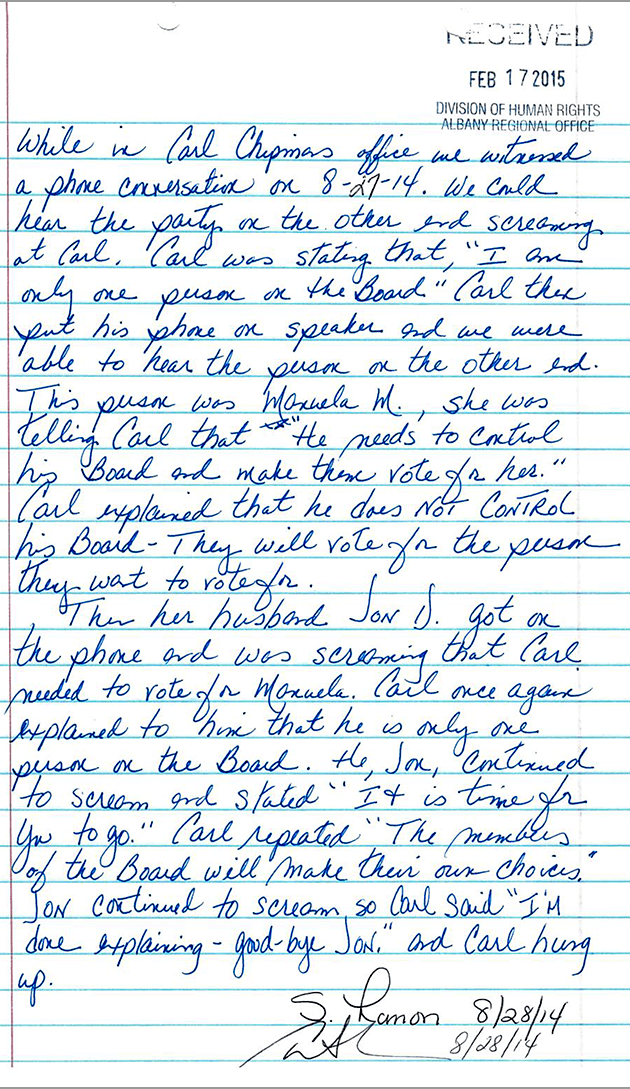 RECEIVED
FEB 17 2015
DIVISION OF HUMAN RIGHTS
ALBANY REGIONAL OFFICE
While in Carl Chipmans office we witnessed
a phone conversation on 8-27-14. We could
hear the party on the other end screaming
at Carl. Carl was stating that, "I am
only one person on the Board" Carl then
put his phone on speaker and we were
able to hear the person on the other end.
This person was Manuela M., she was
telling Carl that "He needs to control
his Board and make them vote for her."
Carl explained that he does NOT CONTROL
his Board - They will vote for the person
they want to vote for.
Then her husband JON D. got on
the phone and was screaming that Carl
needed to vote for Manuela. Carl once again
explained to him that he is only one
person on the Board. He, Jon, continued
to scream and stated "It is time for
You to go." Carl repeated "The members
of the Board will make their own choices."
JON continued to scream, so Carl said "I'M
done explaining - good-bye JON." and Carl hung
up.
S. 8/28/14
8/28/14